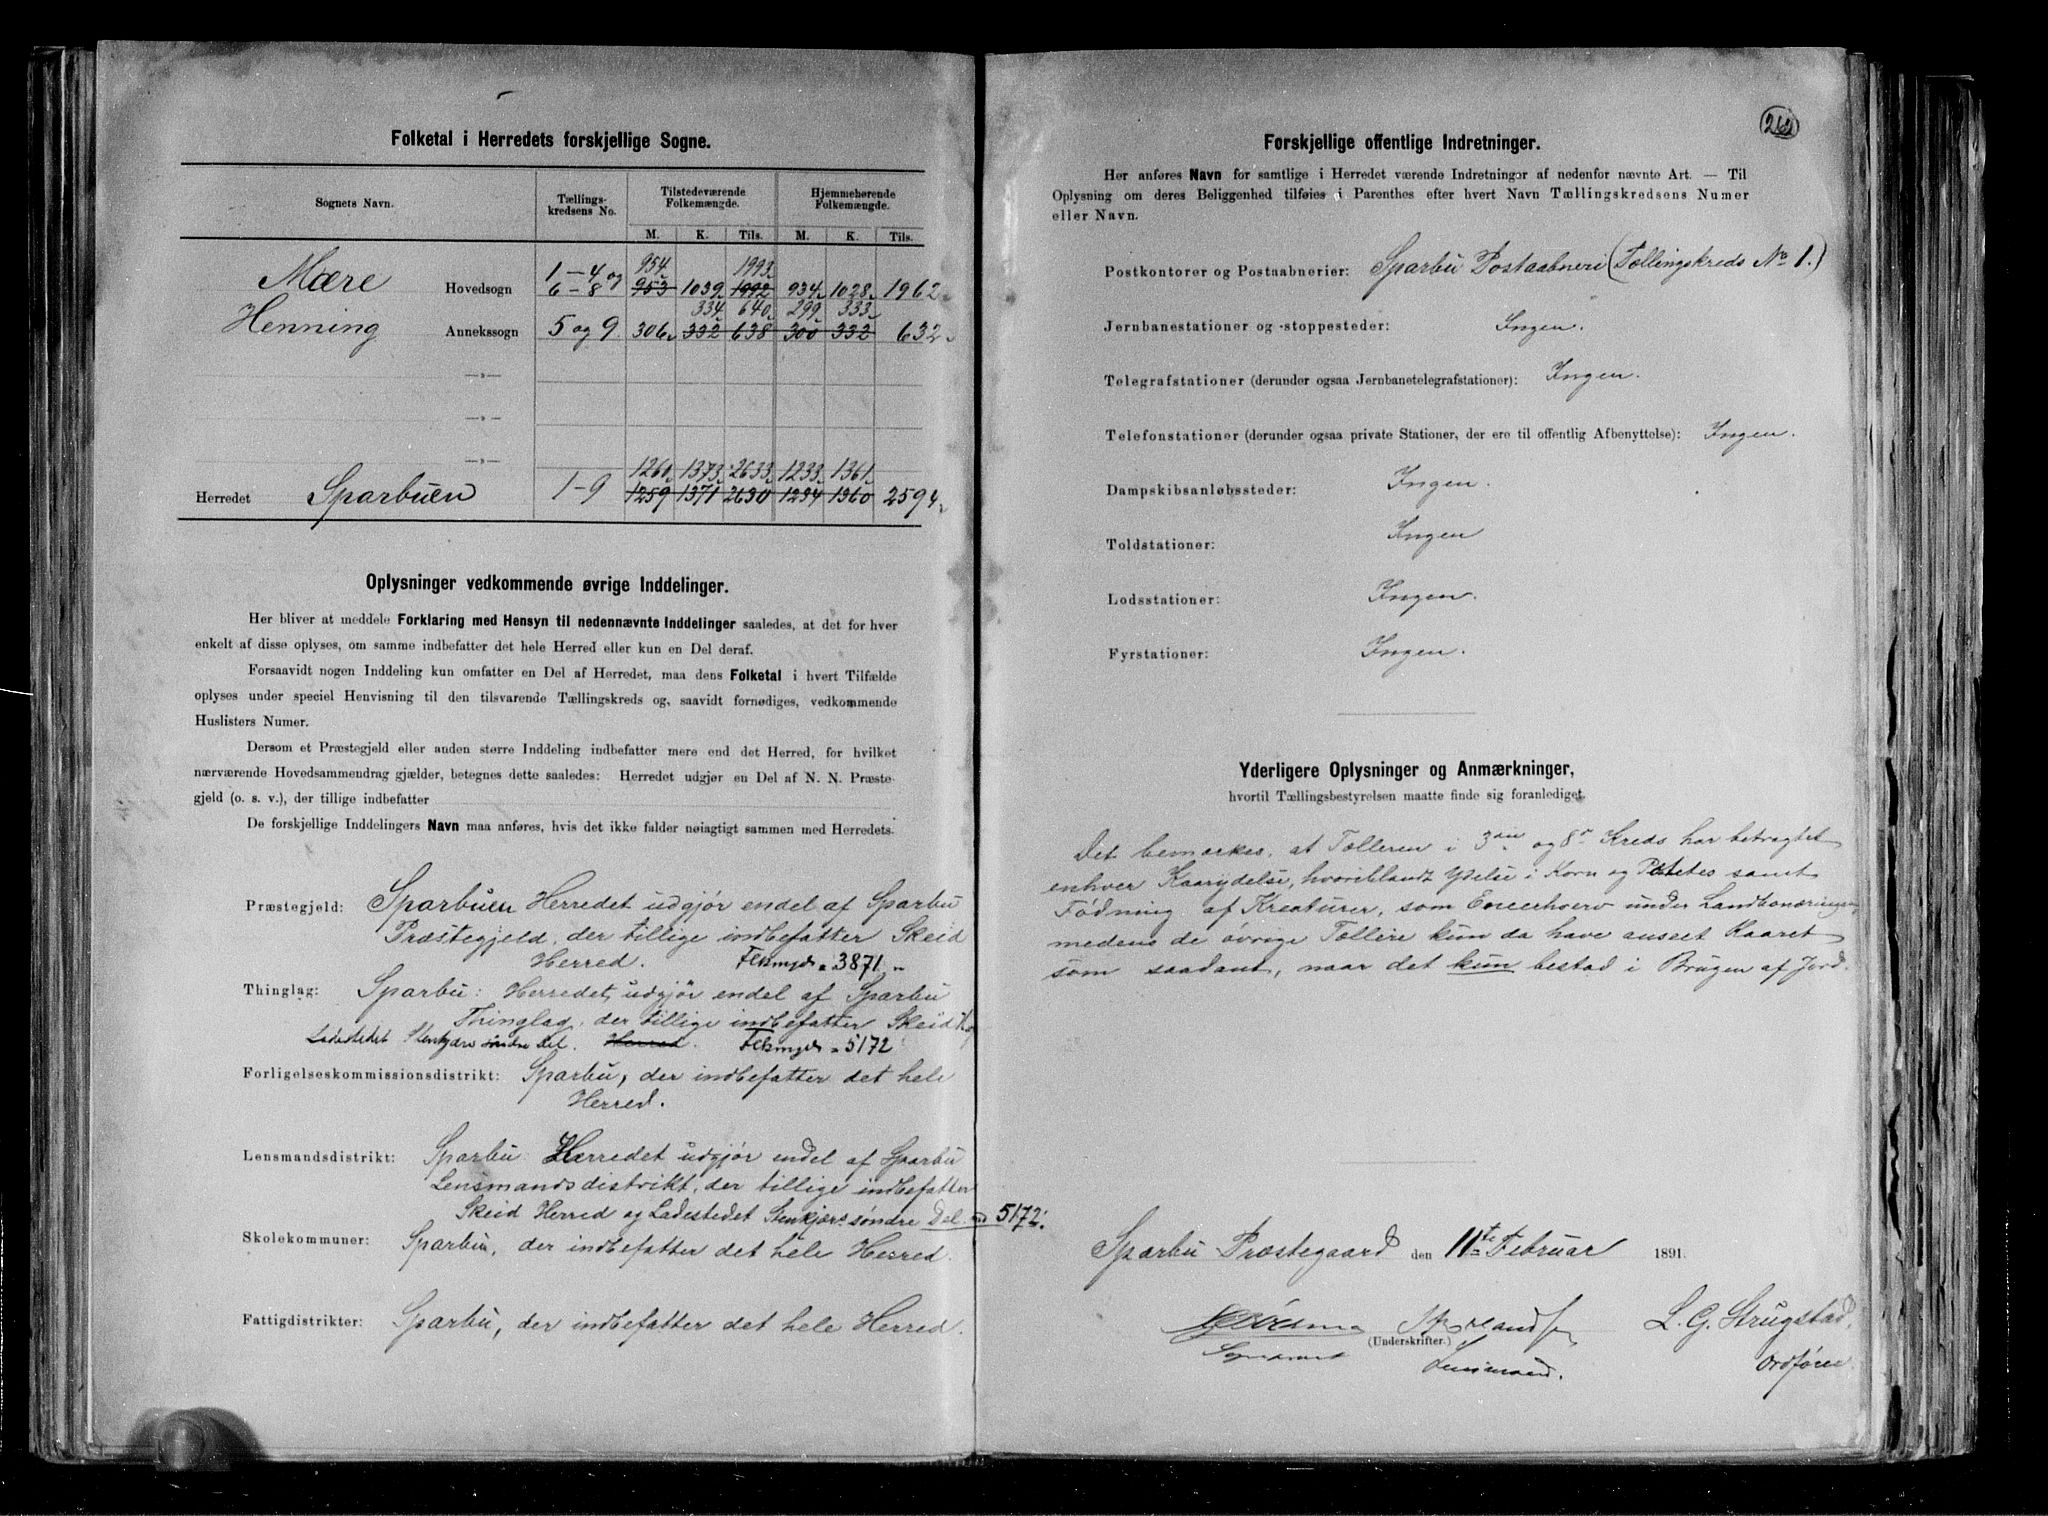 Folketal i Herredets forskjellige Sogne.
Sognets Navn. Tællings- kredsens No. Tilstedeværende Folkemængde. Hjemmehørende Folkemængde.
M. K. Tils. M. K. Tils.
954 1993
Mære Hovedsogn 1-4 og 6-8 953 1039 1992 934 1028 1962
334 640 299 333
Henning Annekssogn 5 og 9. 306 332 638 300 332 632
—„—
—„—
—„—
1260 1373 2633 1233 1361
Herredet Sparbuen 1-9 1259 1371 2630 1234 1360 2594
Oplysninger vedkommende øvrige Inddelinger.
Her bliver at meddele Forklaring med Hensyn til nedennævnte Inddelinger saaledes, at det for hver
enkelt af disse oplyses, om samme indbefatter det hele Herred eller kun en Del deraf.
Forsaavidt nogen Inddeling kun omfatter en Del af Herredet, maa dens Folketal i hvert Tilfælde
oplyses under speciel Henvisning til den tilsvarende Tællingskreds og, saavidt fornødiges, vedkommende
Huslisters Numer.
Dersom et Præstegjeld eller anden større Inddeling indbefatter mere end det Herred, for hvilket
nærværende Hovedsammendrag gjælder, betegnes dette saaledes: Herredet udgjør en Del af N. N. Præste-
gjeld (o. s. v.), der tillige indbefatter
De forskjellige Inddelingers Navn maa anføres, hvis det ikke falder nøiagtigt sammen med Herredets.
Præstegjeld: Sparbuen Herredet udgjør endel af Sparbu
Præstegjeld, der tillige indbefatter Skeid
Herred. Flkmgd = 3871
Thinglag: Sparbu: Herredet udgjør endel af Sparbu
Thinglag, der tillige indbefatter Skeid H. og
Ladestedet Stenkjærs søndre Del. Herred. Flkmgd = 5172
Forligelseskommissionsdistrikt: Sparbu, der indbefatter det hele
Herred.
Lensmandsdistrikt: Sparbu: Herredet udgjør endel af Sparbu
Lensmandsdistrikt, der tillige indbefatter
Skeid Herred og Ladestedet Stenkjærs søndre Del 5172.
Skolekommuner: Sparbu, der indbefatter det hele Herred.
Fattigdistrikter: Sparbu, der indbefatter det hele Herred.
262
Forskjellige offentlige Indretninger.
Her anføres Navn for samtlige i Herredet værende Indretningor af nedenfor nævnte Art. — Til
Oplysning om deres Beliggenhed tilføies i Parenthes efter hvert Navn Tællingskredsens Numer
eller Navn.
Postkontorer og Postaabnerier: Sparbu Postaabneri (Tællingskreds No 1.)
Jernbanestationer og -stoppesteder: Ingen.
Telegrafstationer (derunder ogsaa Jernbanetelegrafstationer): Ingen.
Telefonstationer (derunder ogsaa private Stationer, der ere til offentlig Afbenyttelse): Ingen.
Dampskibsanløbssteder: Ingen.
Toldstationer: Ingen
Lodsstationer: Ingen.
Fyrstationer: Ingen.
Yderligere Oplysninger og Anmærkninger,
hvortil Tællingsbestyrelsen maatte finde sig foranlediget.
Det bemærkes, at Tælleren i 3die og 8de Kreds har betragtet
enhver Kaarydelse, hvoriblandt Ydelse i Korn og Potetes samt
Fødning af Kreaturer, som Eneerhverv under Landbonæringen,
medens de øvrige Tællere kun da have anseet Kaaret
som saadant, naar det kun bestod i Brugen af Jord.
Sparbu Præstegaard den 11te Februar 1891.
L. G. Strugstad,
(Underskrifter.)
Sognepræst Lensmand. Ordfører